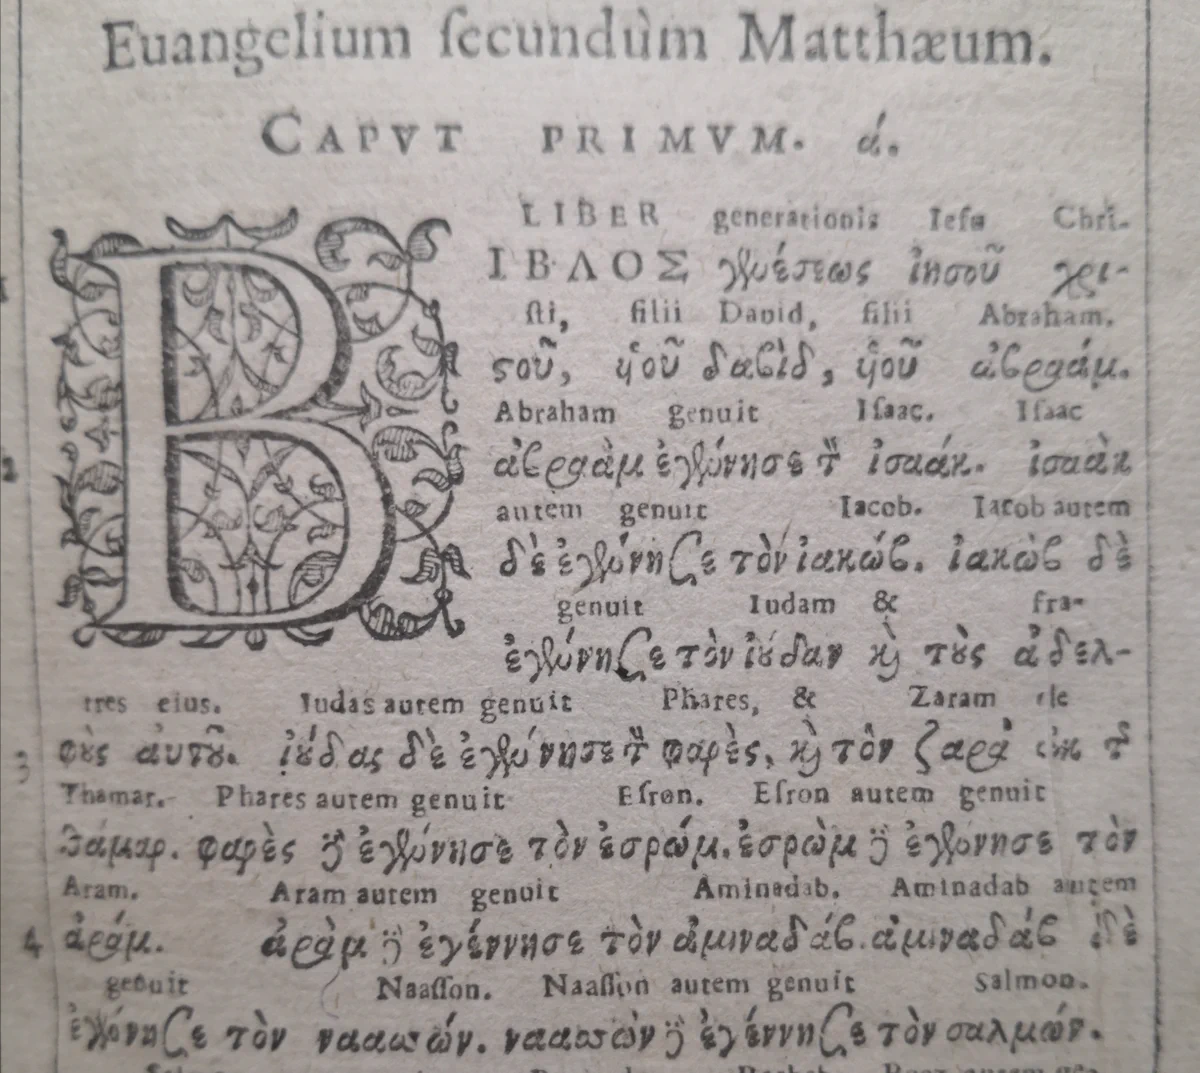 Euangelium ſecundùm Matthæum.
CAPVT PRIMVM. ά.
LIBER generationis Ieſu Chri-
ΒΙΒΛΟΣ γενέσεως ἰησοῦ χρι-
ſti, filii Dauid, filii Abraham.
ςοῦ, ὑοῦ δαβὶδ, ὑοῦ ἀβραάμ.
Abraham genuit Iſaac. Iſaac
2 ἀβραὰμ ἐγέννησε τὸν ἰσαάκ. ἰσαὰκ
autem genuit Iacob. Iacob autem
δὲ ἐγέννησε τὸν ἰακώβ. ἰακὼβ δὲ
genuit Iudam & fra-
ἐγέννησε τὸν ἰούδαν καὶ τοὺς ἀδελ-
tres eius. Iudas autem genuit Phares, & Zaram de
3 φοὺς αὐτοῦ. ἰούδας δὲ ἐγέννησε τὸν φαρὲς, καὶ τὸν ζαρὰ ἐκ τῆς
Thamar. Phares autem genuit Eſron. Eſron autem genuit
θάμαρ. φαρὲς δὲ ἐγέννησε τὸν ἐσρώμ. ἐσρὼμ δὲ ἐγέννησε τὸν
Aram. Aram autem genuit Aminadab. Aminadab autem
4 ἀράμ. ἀρὰμ δὲ ἐγέννησε τὸν ἀμιναδάβ. ἀμιναδάβ δὲ
genuit Naaſſon. Naaſſon autem genuit Salmon.
ἐγέννησε τὸν ναασσών. ναασσὼν δὲ ἐγέννησε τὸν σαλμών.